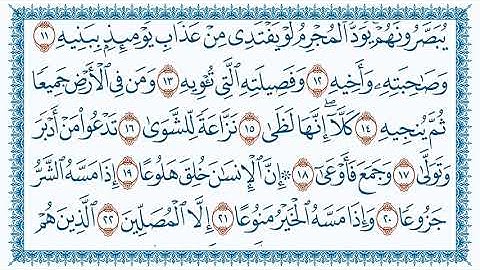 يُبَصَّرُونَهُمْ يَوَدُّ ٱلْمُجْرِمُ لَوْ يَفْتَدِى مِنْ عَذَابِ يَوْمِئِذٍۭ بِبَنِيهِ ١١
وَصَٰحِبَتِهِۦ وَأَخِيهِ ١٢ وَفَصِيلَتِهِ ٱلَّتِى تُـْٔوِيهِ ١٣ وَمَن فِى ٱلْأَرْضِ جَمِيعًا
ثُمَّ يُنجِيهِ ١٤ كَلَّآ ۖ إِنَّهَا لَظَىٰ ١٥ نَزَّاعَةً لِّلشَّوَىٰ ١٦ تَدْعُوا۟ مَنْ أَدْبَرَ
وَتَوَلَّىٰ ١٧ وَجَمَعَ فَأَوْعَىٰٓ ١٨ ۞ إِنَّ ٱلْإِنسَٰنَ خُلِقَ هَلُوعًا ١٩ إِذَا مَسَّهُ ٱلشَّرُّ
جَزُوعًا ٢٠ وَإِذَا مَسَّهُ ٱلْخَيْرُ مَنُوعًا ٢١ إِلَّا ٱلْمُصَلِّينَ ٢٢ ٱلَّذِينَ هُمْ